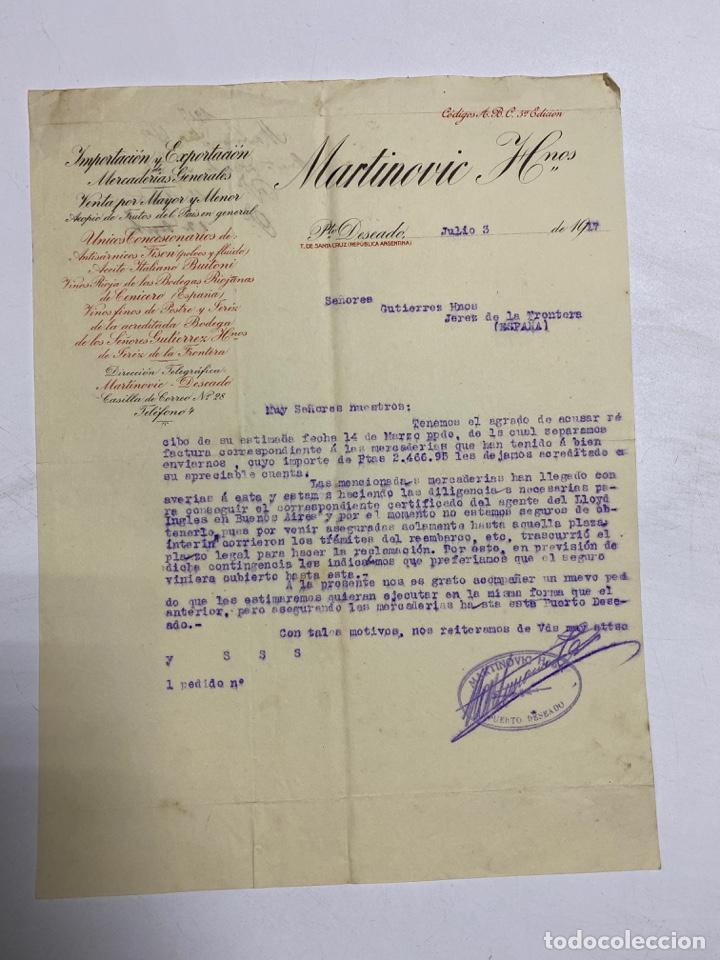 Códigos A.B.C. 5ª Edición
Importación y Exportación
de
Mercaderías Generales
Venta por Mayor y Menor
Acopio de Frutos del País en general
Unicos Concesionarios de
Antisárnicos Tisen (polvos y fluído)
Aceite Italiano Buitoni
Vinos Rioja de las Bodegas Riojanas
de Cenicero (España)
Vinos finos de Postre y Jeréz
de la acreditada Bodega
de los Señores Gutiérrez Hnos
de Jeréz de la Frontera
Dirección Telegráfica
Martinovic - Deseado
Casilla de Correo Nº 28
Teléfono 4
Martinovic Hnos
Pto Deseado, Julio 3 de 1917
T. DE SANTA CRUZ (REPÚBLICA ARGENTINA)
Señores
Gutierrez Hnos
Jerez de la Frontera
(ESPAÑA)
Muy Señores nuestros;
Tenemos el agrado de acusar ré
cibo de su estimada fecha 14 de Marzo ppdo, de la cual separamos
factura correspondiente á las mercaderias que han tenido á bien
enviarnos , cuyo importe de Ptas 2.466.95 les dejamos acreditado en
su apreciable cuenta.
Las mencionadas mercaderias han llegado con
averias á esta y estamos haciendo las diligencias necesarias pa-
ra conseguir el correspondiente certificado del agente del Lloyd
Ingles en Buenos Aires y por el momento no estamos seguros de ob-
tenerlo, pues por venir aseguradas solamente hasta aquella plaza,
interin corrieron los trámites del reembarco, etc, trascurrió el
plazo legal para hacer la reclamación. Por ésto, en previsión de
dicha contingencia les indicamos que preferiamos que el seguro
viniera cubierto hasta esta.-
A la presente nos es grato acompañar un nuevo pedi
do que les estimaremos quieran ejecutar en la misma forma que el
anterior, pero asegurando las mercaderias hasta este Puerto Dese-
ado.-
Con tales motivos, nos reiteramos de Vds muy attso
y S S S
1 pedido nº
MARTINOVIC H
PUERTO DESEADO
todocoleccion
todocoleccion.net